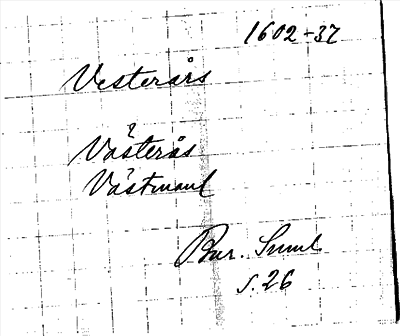 1602-37
Vesterårs
?
Västerås
Västmanl
Bur. Suml
s. 26